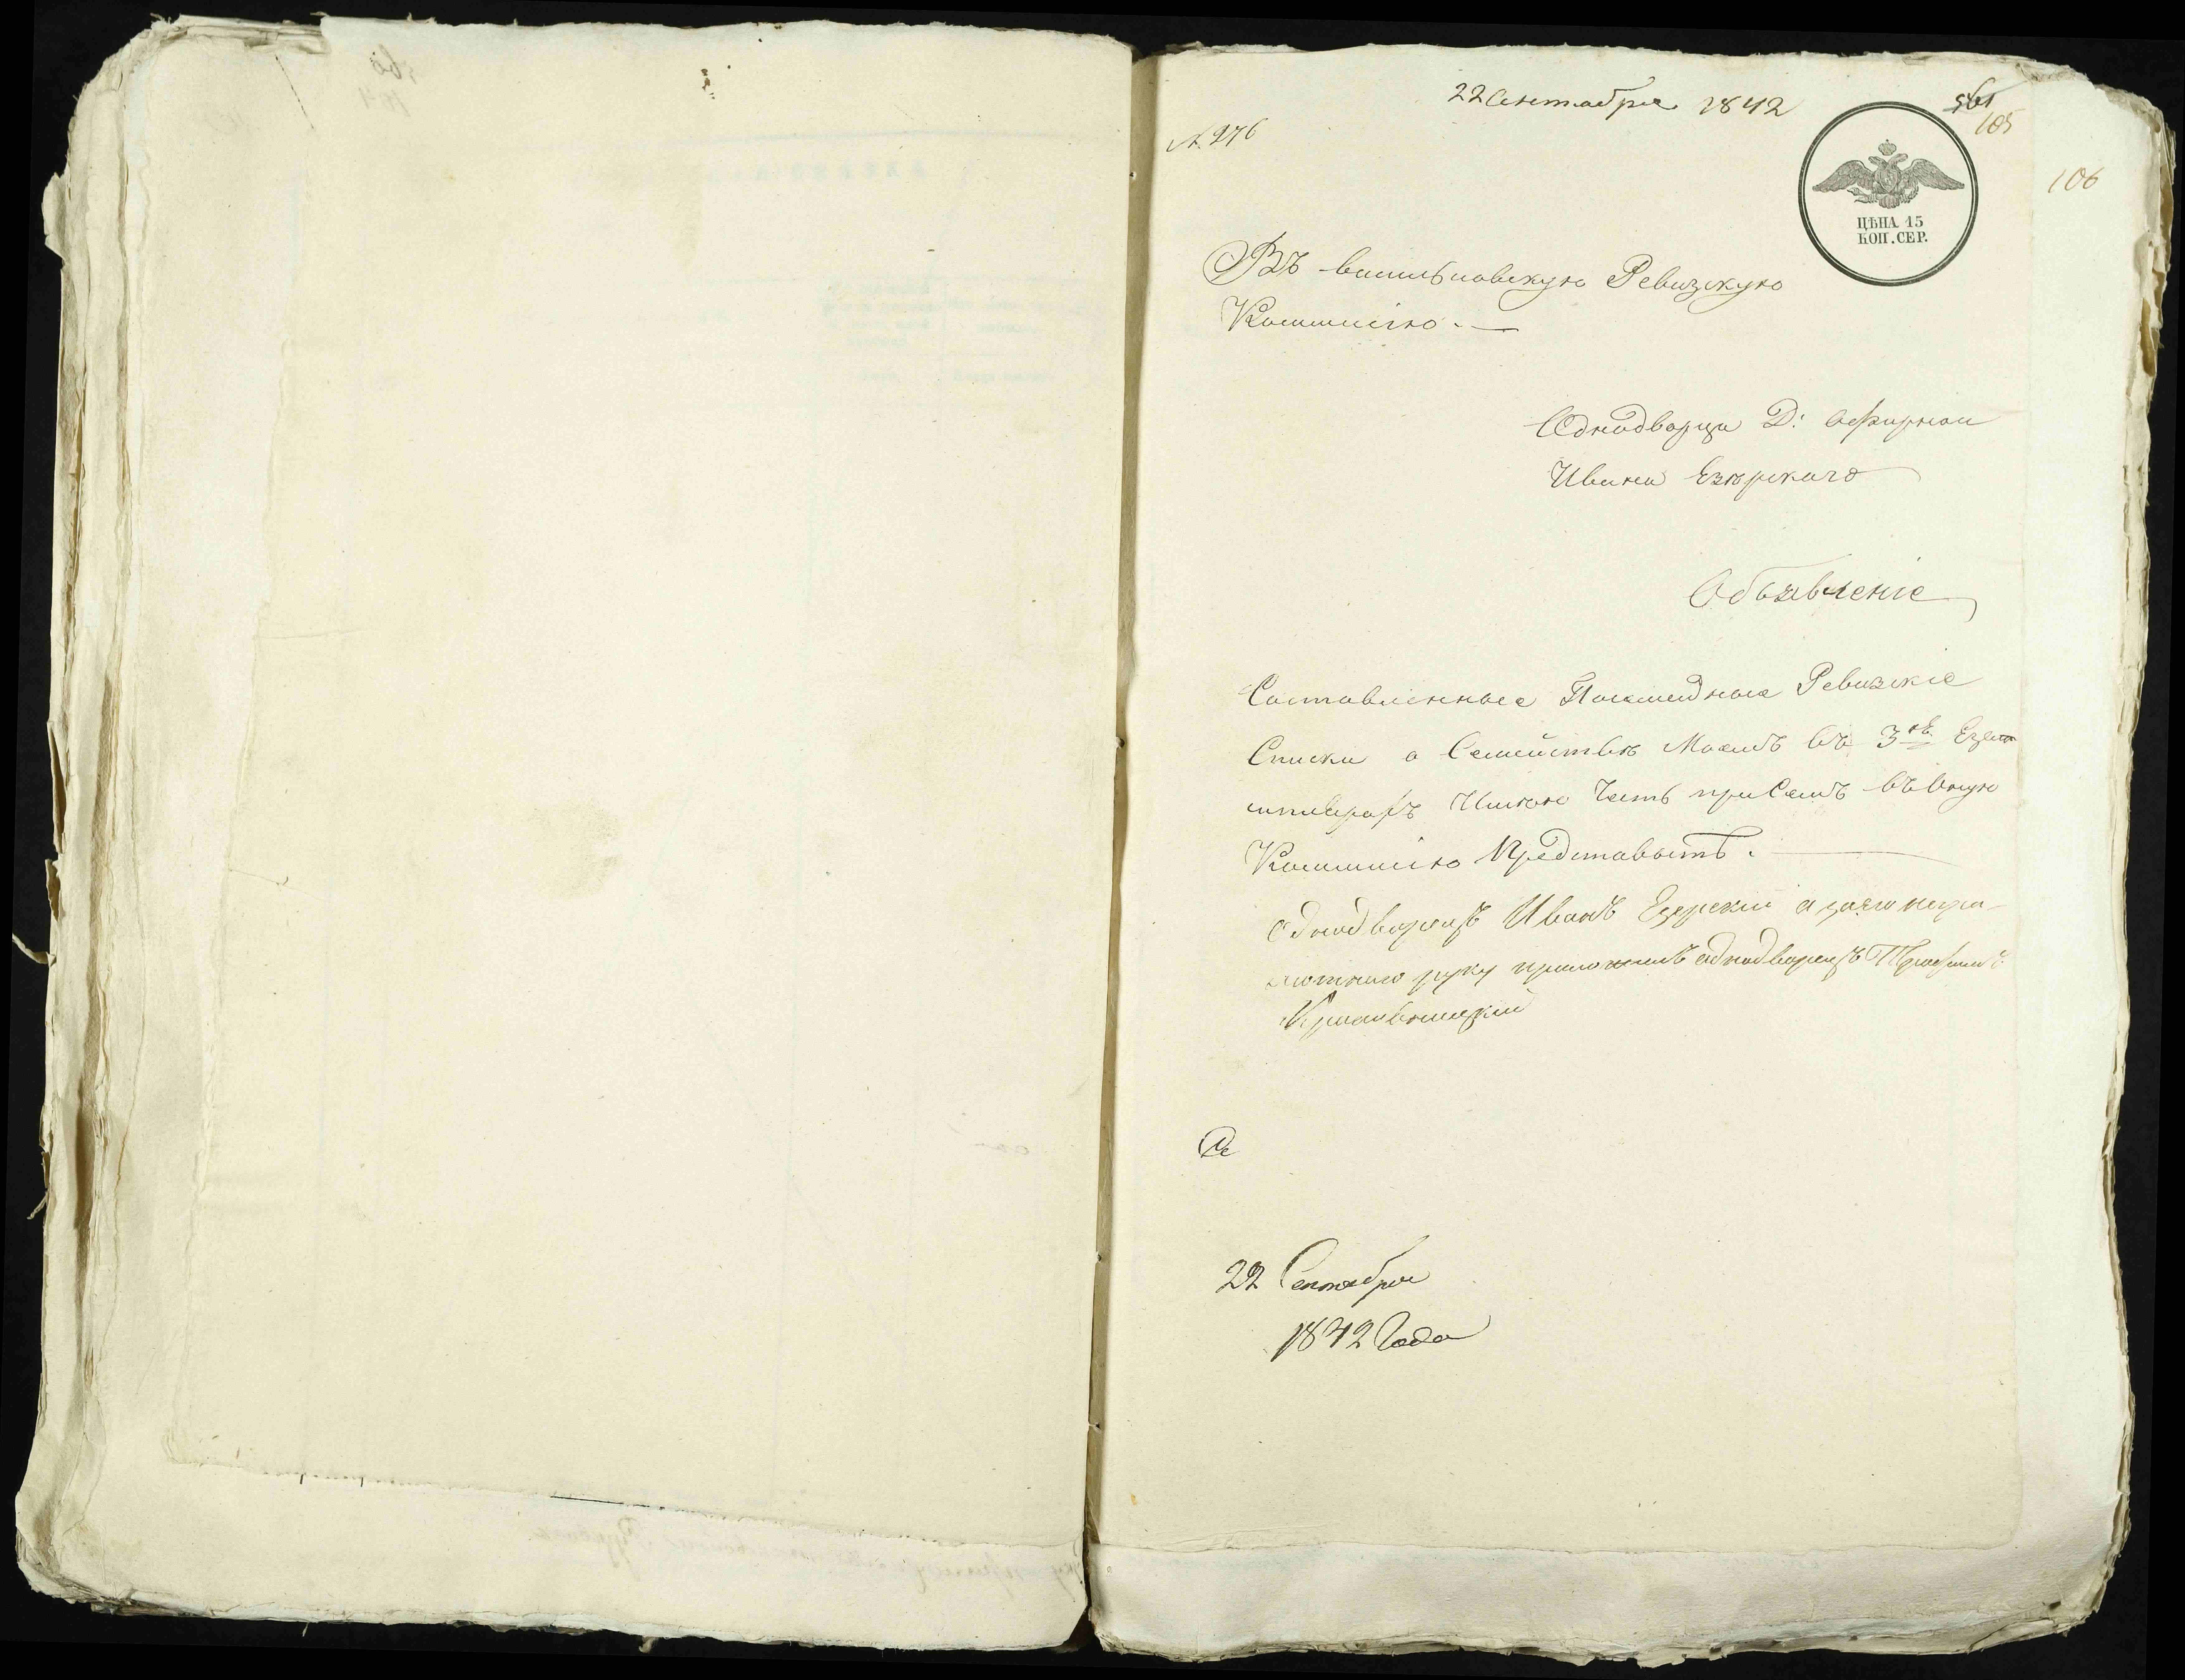 22 Сентября 1842
561
105
№ 276
106
ЦѢНА 15
КОП. СЕР.
Въ Васильковскую Ревизскую
Коммисію.—
Однодворца Д:
Ивана Езѣрскаго
Объявленіе
Составленные Посемейные Ревизскіе
Списки о Семействѣ Моемъ въ 3хъ Екзем
плярахъ Имѣю Честь при Семъ въ Оную
Коммисію Представить.
однодворецъ Иванъ Езерский а заего негра
мотнаго руку приложилъ однодворецъ
22 Сентября
1842 Года